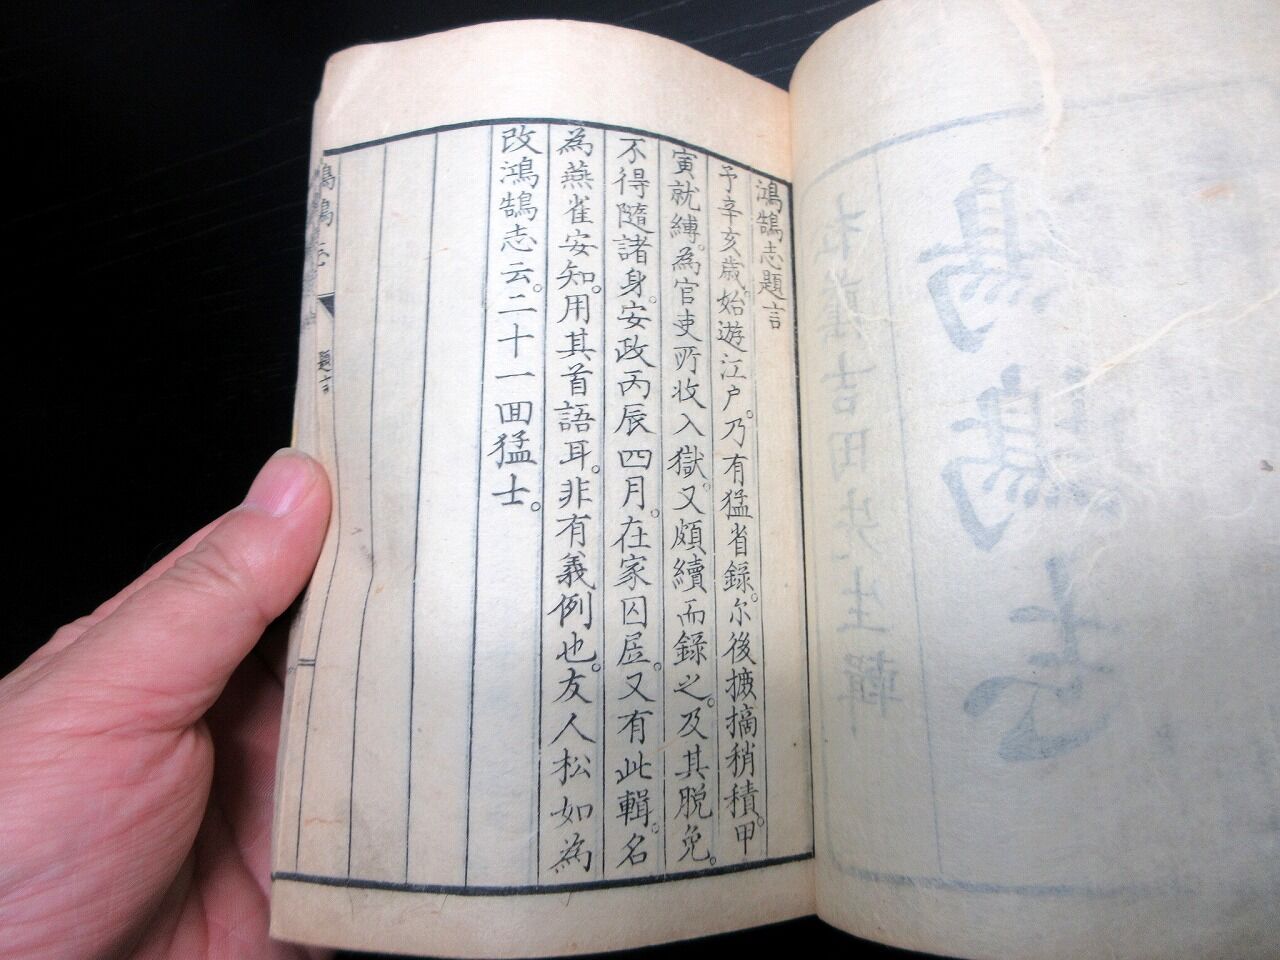 鴻鵠志題言
予辛亥歳。始遊江戸。乃有猛省録。尓後摭摘稍積。甲
寅就縛。為官吏所收入獄。又頗續而録之。及其脱免。
不得隨諸身。安政丙辰四月。在家囚㞐。又有此輯。名
為燕雀安知。用其首語耳。非有義例也。友人松如為
改鴻鵠志云。二十一回猛士。
鴻鵠志
題言
鴻鵠志
松蔭吉田先生輯